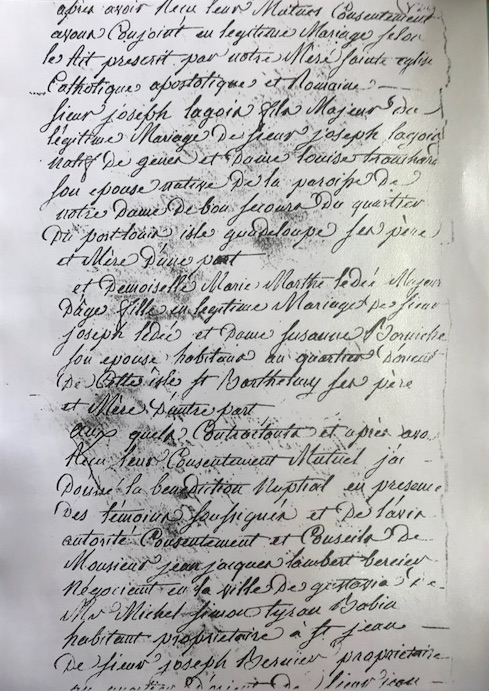 après avoir reçu leur Mutuel Consentement
avons Conjoint en legitime Mariage selon
le Rit prescrit par notre Mère sainte eglise
Catholique apostolique et Romaine
sieur joseph lagoin fils Majeur Du
légitime Mariage De sieur joseph lagoin
natif De genes et Dame louise
son epouse native De la paroisse De
notre Dame De bon secours Du quartier
Du port louis isle guadeloupe ses père
et Mère D'une part
et Demoiselle Marie Marthe ledeé Majeur
D'âge fille en legitime Mariage De sieur
joseph ledeé et Dame Susanne
son epouse habitans au quartier D'orient
De Cette isle st Barthelemy ses père
et Mère D'autre part
aux quels Contractants et après avo
Reçu leur Consentement Mutuel j'ai
Donné la benediction Nuptial en presence
Des témoins soussignés et De l'avis
autorité Consentement et Conseils De
Monsieur jean jacques lambert bernier
Négociant en la ville De gustavia
Mr Michel Simon tyran Babin
habitant proprietaire à st jean
De sieur joseph Bernier proprietaire
au quartier D'orient De sieur jean